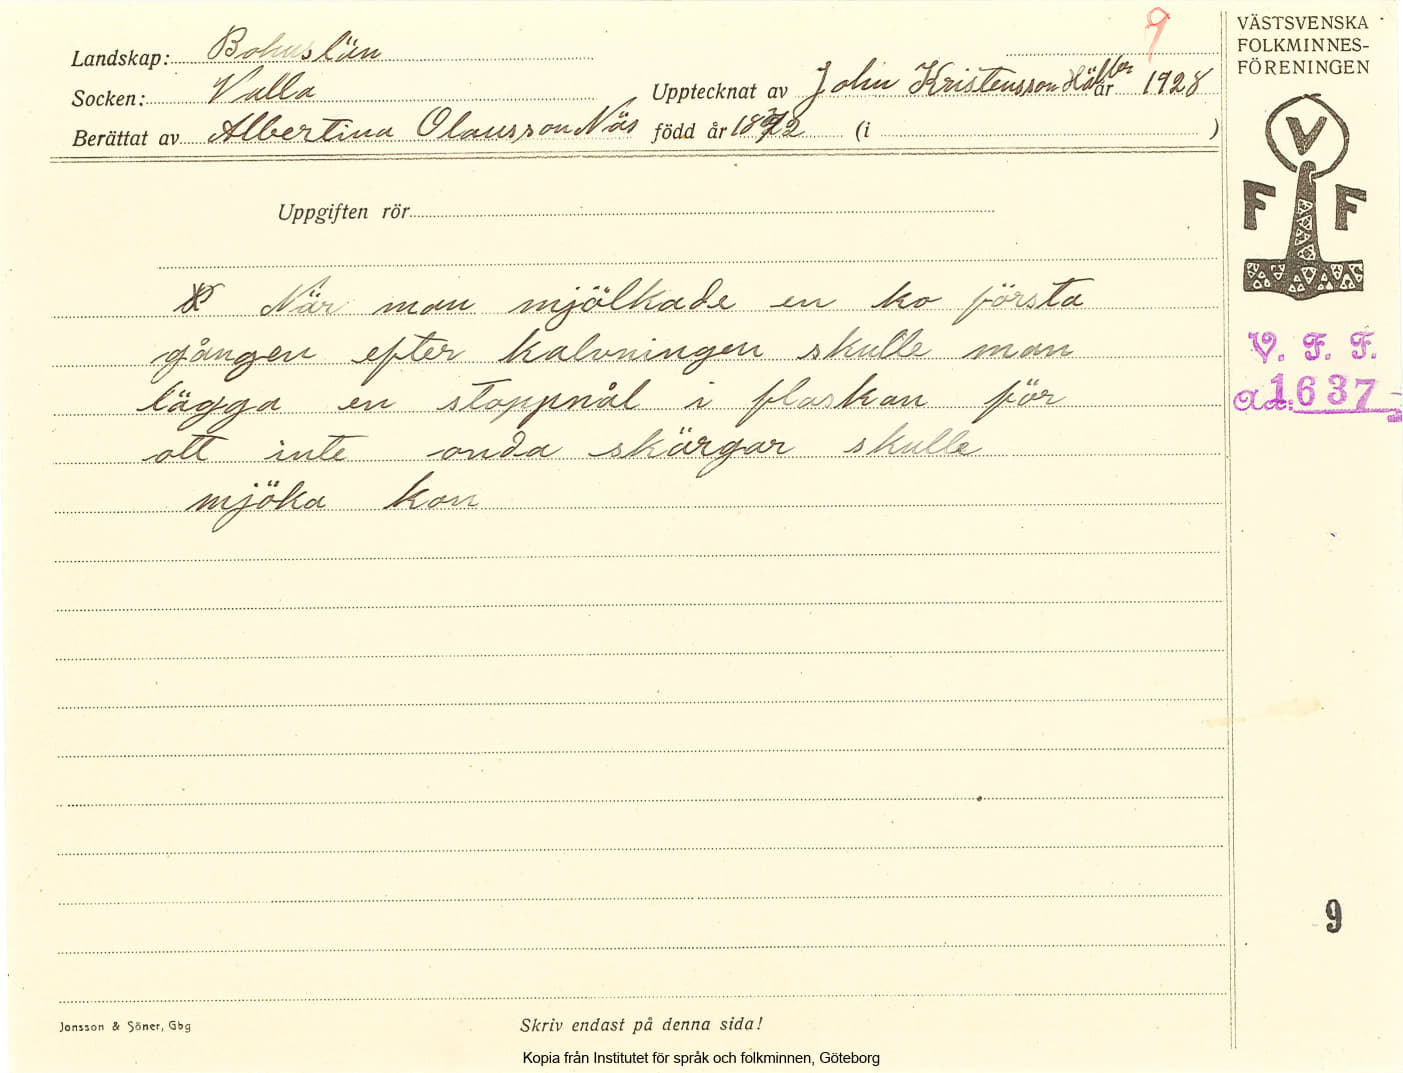 9
VÄSTSVENSKA
FOLKMINNES-
FÖRENINGEN
Landskap: Bohuslän
Socken: Valla
Upptecknat av John Kristensson år 1928
Berättat av Albertina Olausson Näs född år (i )
V
F F
Uppgiften rör
När man mjölkade en ko första
gången efter kalvningen skulle man
lägga en stoppnål i flaskan för
att inte onda skärgar skulle
mjöka kon
V. F. F.
1637
9
Jonsson & Söner, Gbg
Skriv endast på denna sida!
Kopia från Institutet för språk och folkminnen, Göteborg